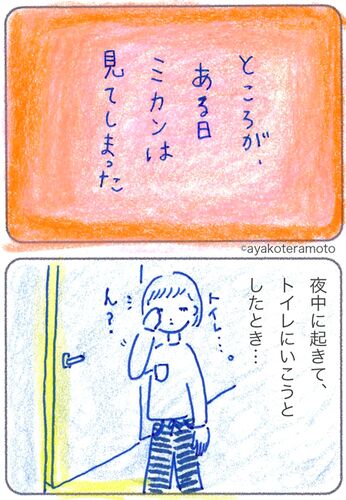 ところが、
ある日
ミカンは
見てしまった
©ayakoteramoto
夜中に起きて、
トイレにいこうと
したとき…
トイレ…。
ん？